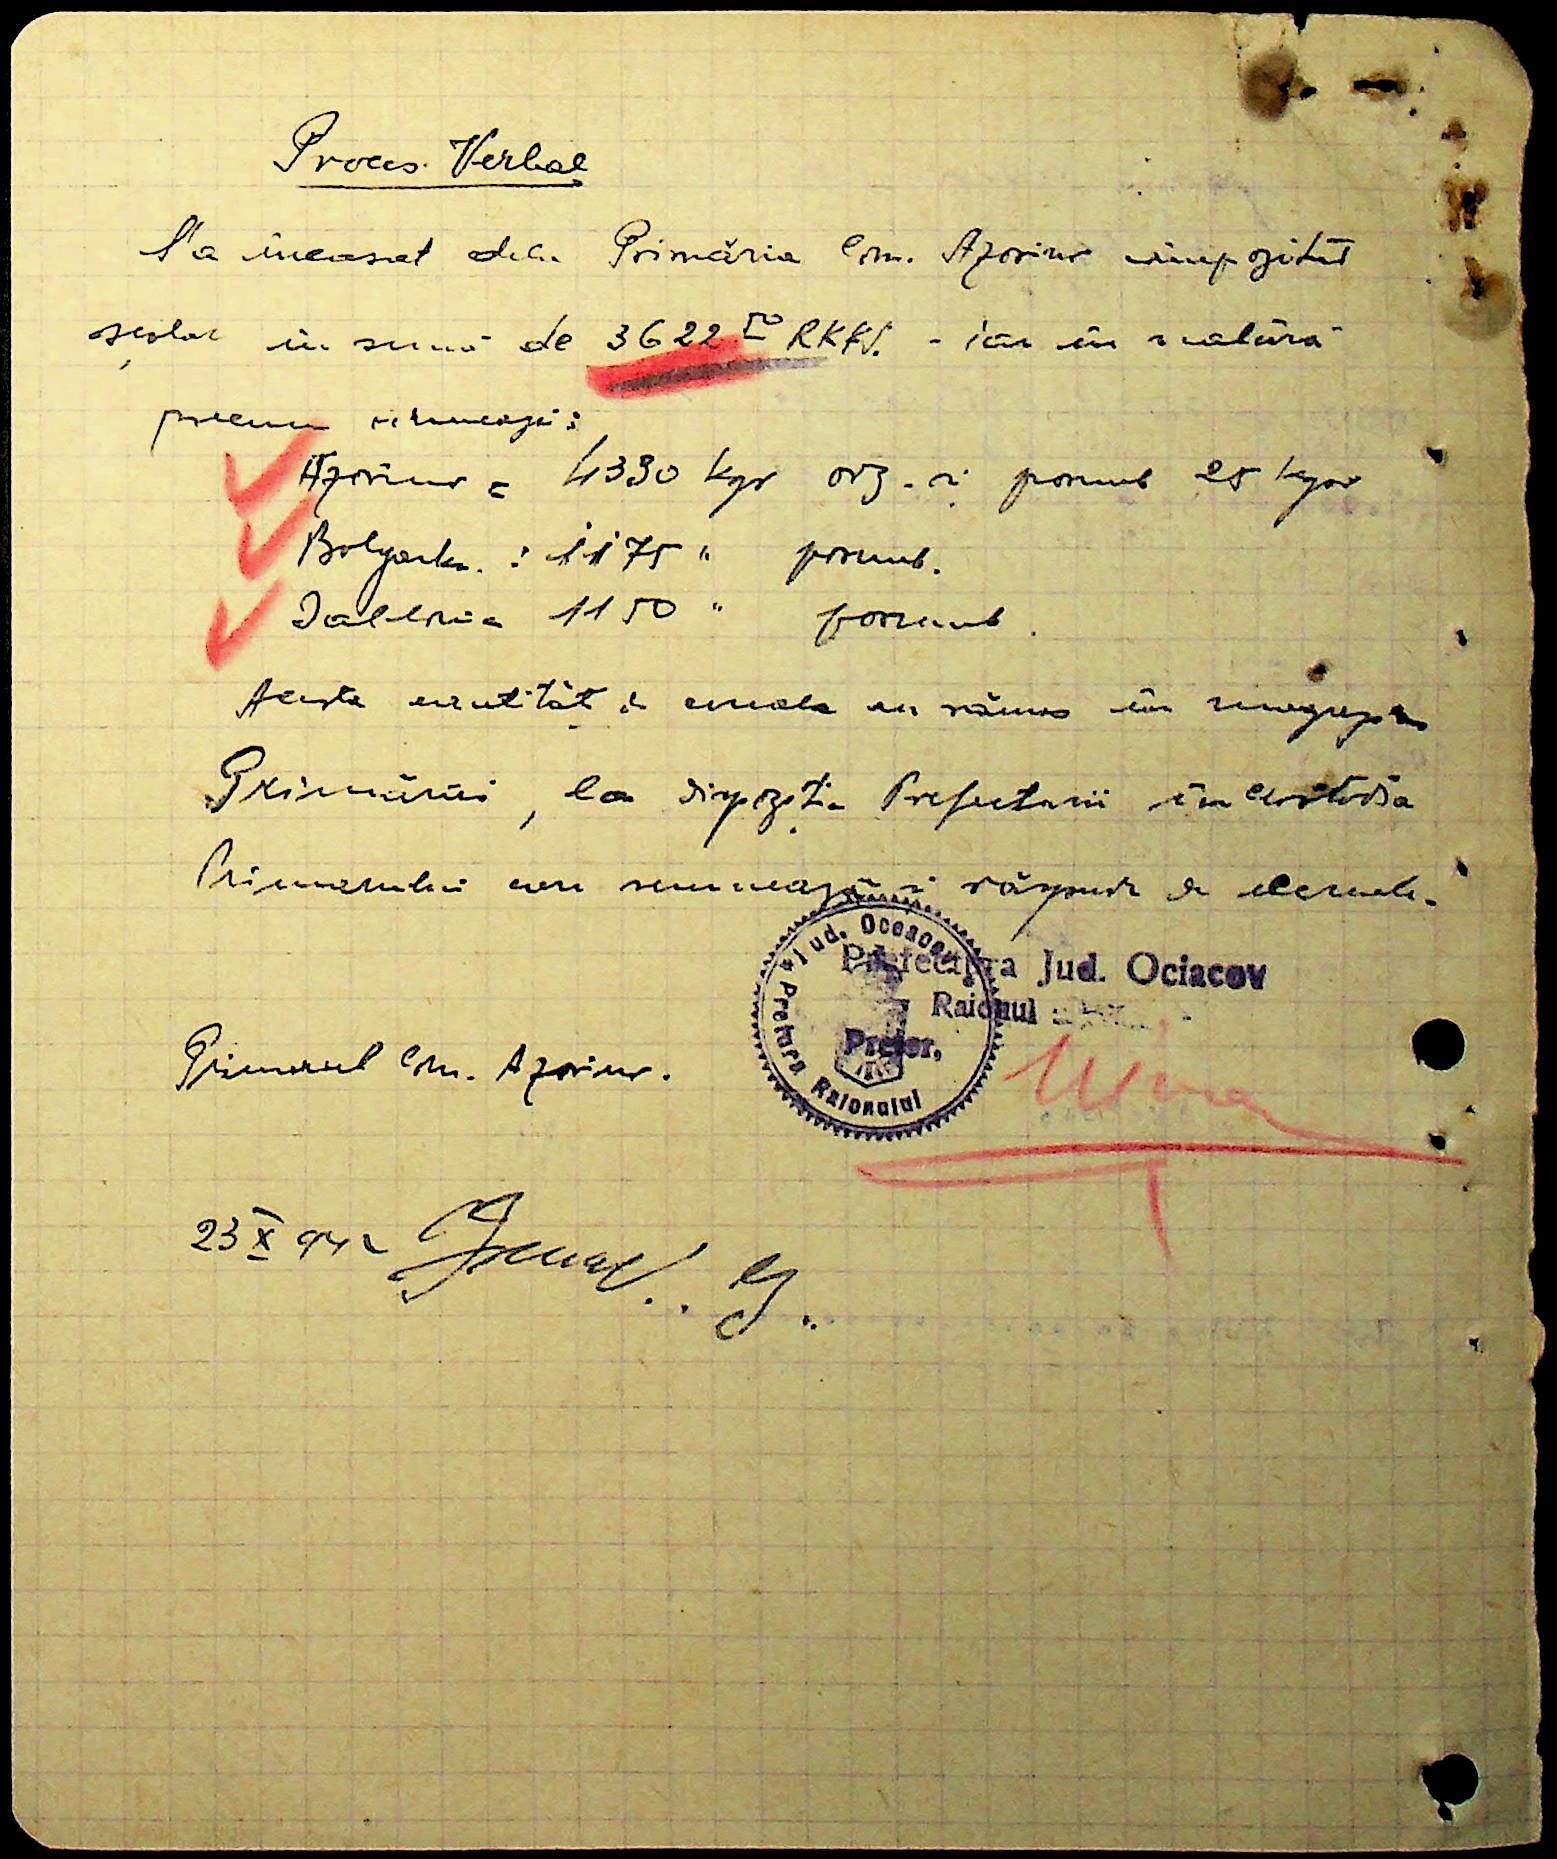 Proces Verbal
S'a încasat dela Primăria Com. Azorino impozitul
școlar în sumă de 3622 50 RKKS. - iar în natură
precum urmează:
Azorino = 4330 kgr orz. și porumb 25 kgr
Bolgarka : 1175 " porumb.
1150 " porumb.
Aceste cantități de cereale au rămas în magazia
Primăriei, la dispoziția Prefecturii în custodia
Primarului care semnează și răspunde de cereale.
Prefectura Jud. Ociacov
Raionul
Pretor,
Jud. Oceacov * Pretura Raionului
Primarul Com. Azorino.
23 X 942